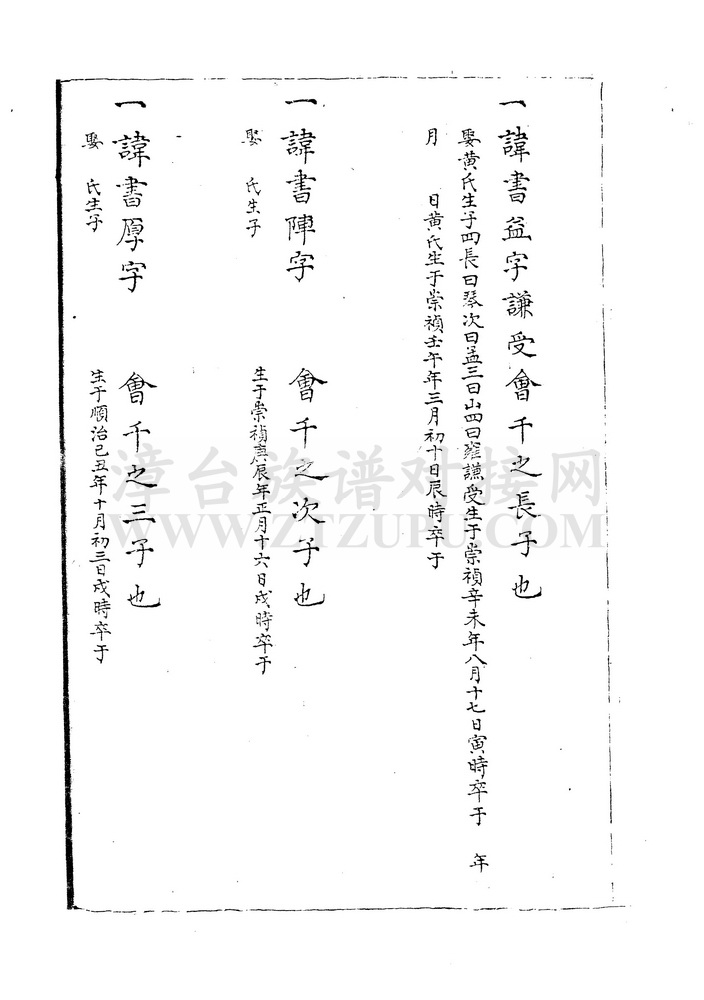 一諱書益字謙受會千之長子也
娶黄氏生子四長曰琴次曰孟三曰山四曰雍謙受生于崇禎辛未年八月十七日寅時卒于　年
月　日黄氏生于崇禎壬午年三月初十日辰時卒于
一諱書陣字　會千之次子也
娶　氏生子　生于崇禎庚辰年正月十六日戌時卒于
一諱書厚字　會千之三子也
娶　氏生子　生于順治己丑年十月初三日戌時卒于
漳台族谱对接网
WWW.ZTZUPU.COM